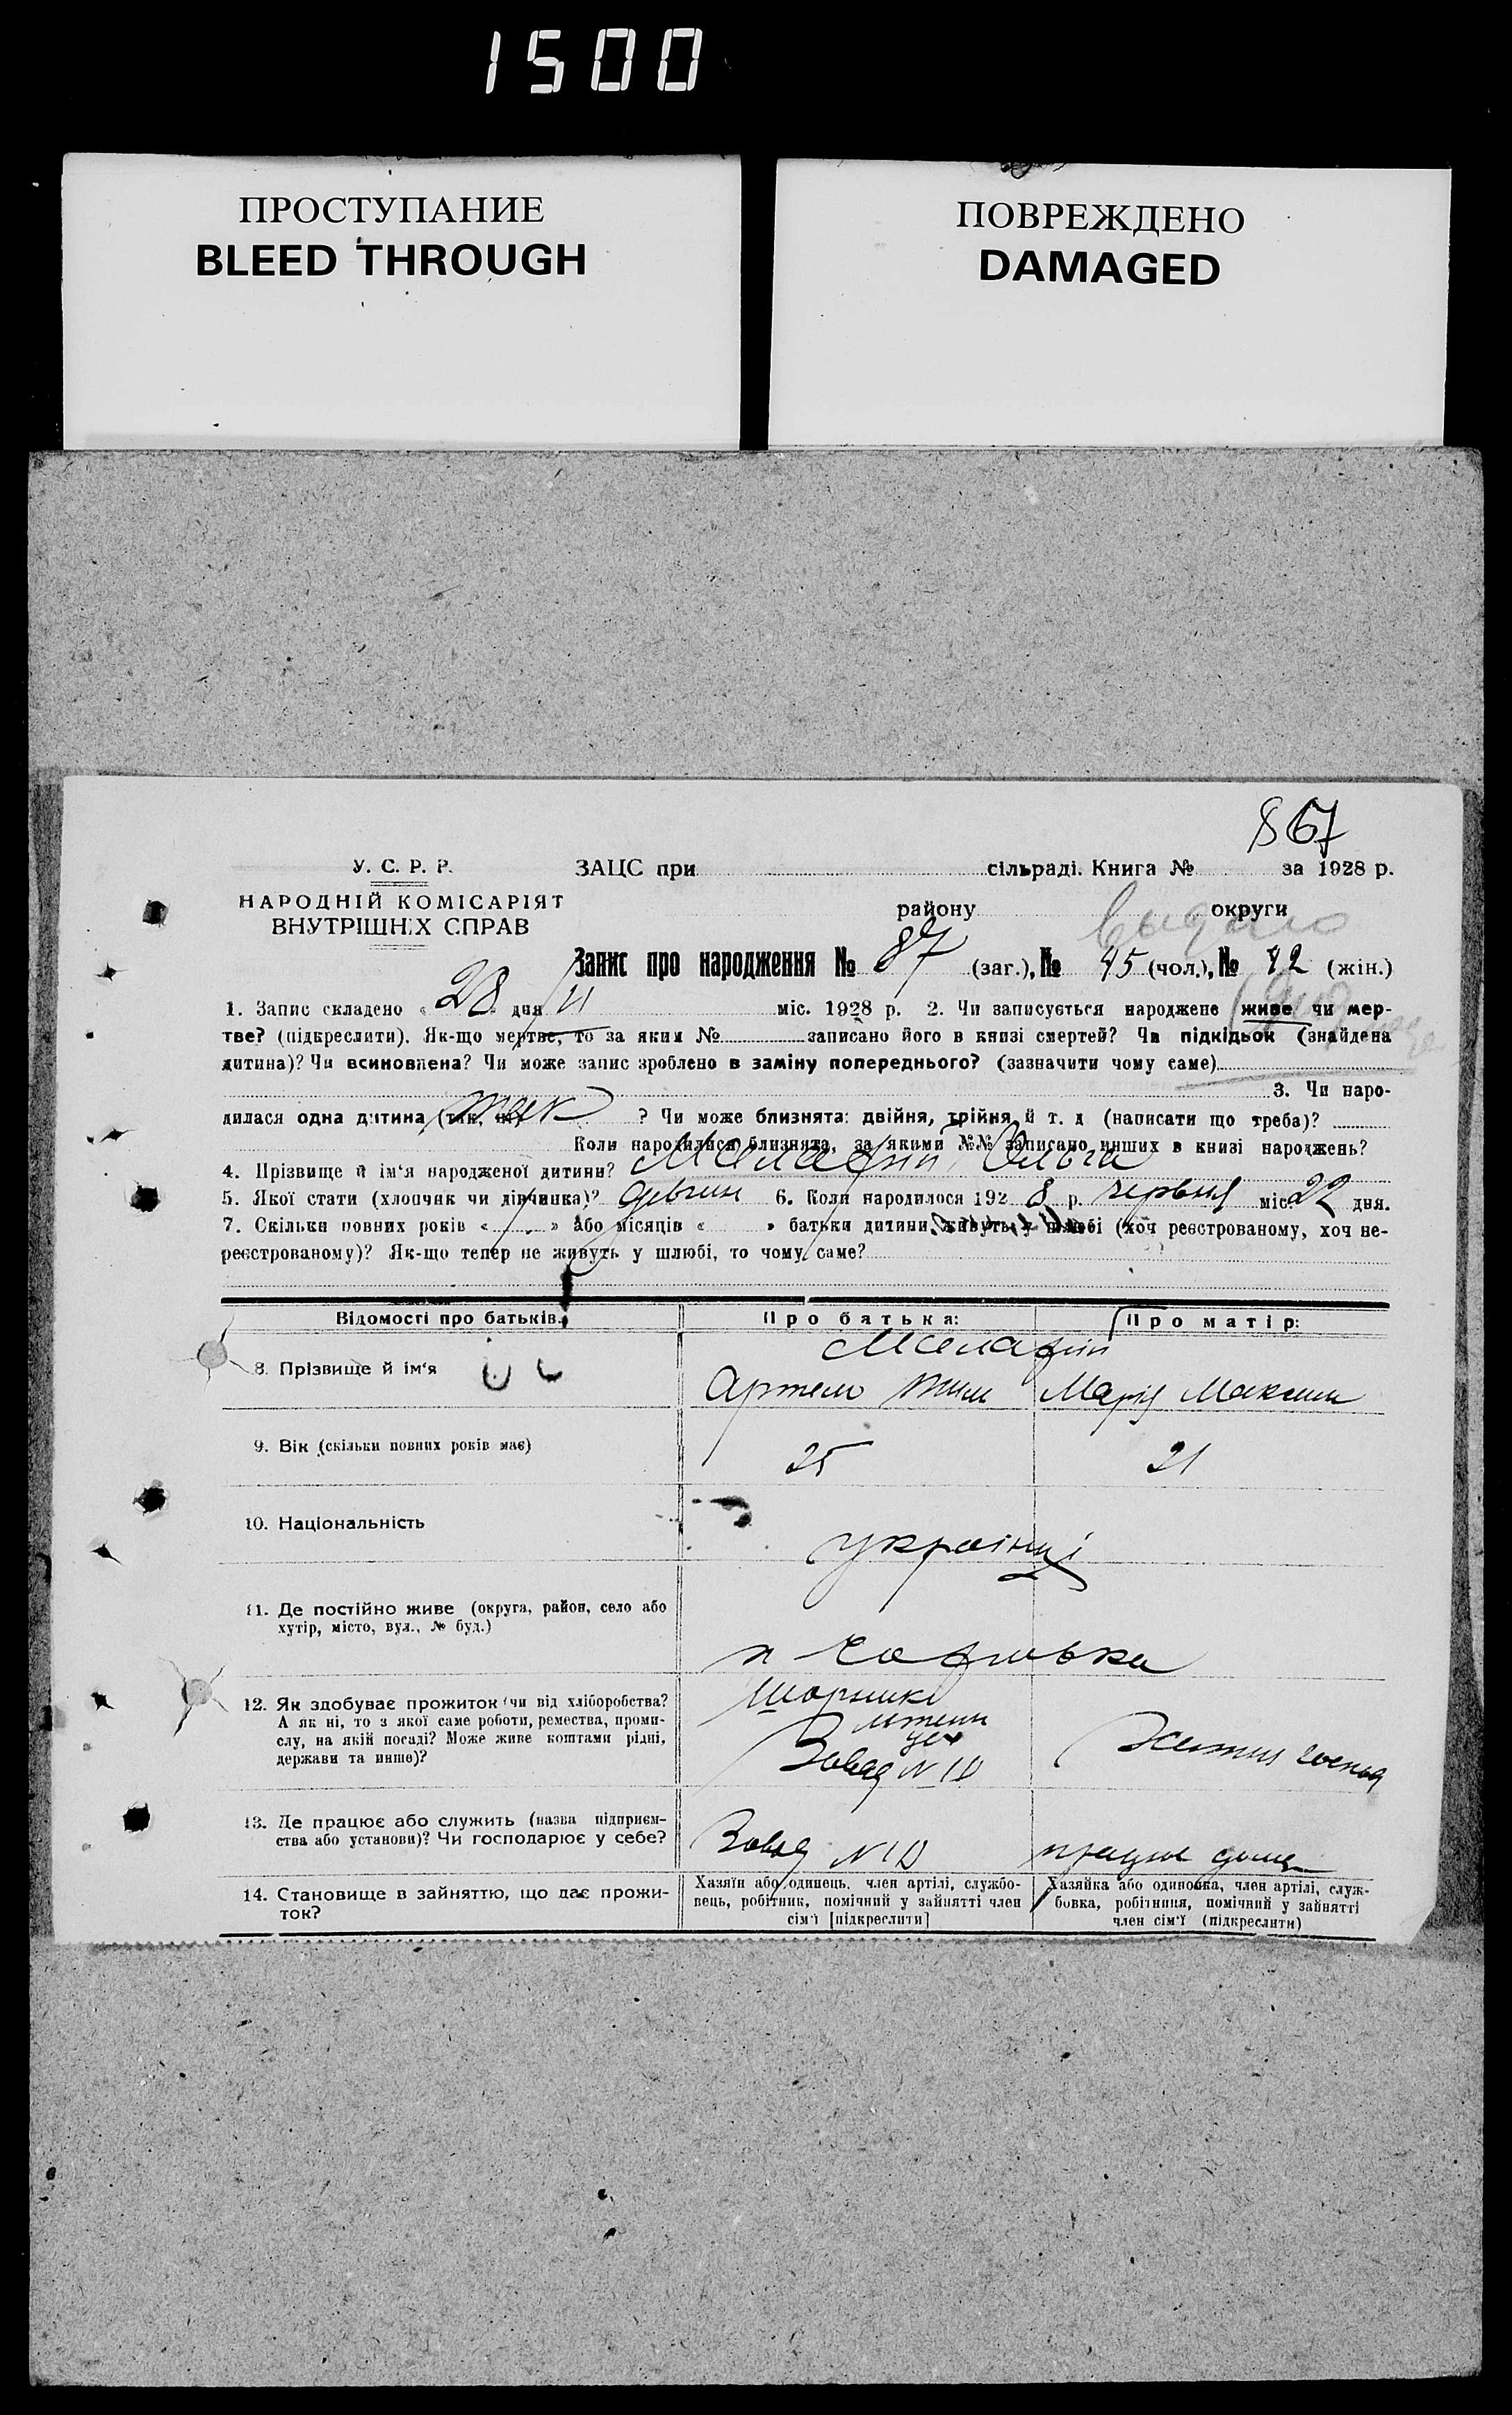 1500
ПРОСТУПАНИЕ
BLEED THROUGH
ПОВРЕЖДЕНО
DAMAGED
867
У. С. Р. Р. ЗАЦС при сільраді. Книга № за 1928 р.
НАРОДНІЙ КОМІСАРІЯТ
ВНУТРІШНІХ СПРАВ
району округи
Видано
Запис про народження № 87 (заг.), № 45 (чол.), № 42 (жін.)
1. Запис складено « 28 дня міс. 1928 р. 2. Чи записується народжене живе чи мер-
тве? (підкреслити). Як-що мертве, то за яким № записано його в книзі смертей? Чи підкідьок (знайдена
дитина)? Чи всиновлена? Чи може запис зроблено в заміну попереднього? (зазначити чому саме)
3. Чи наро-
дилася одна дитина (так, ні) так ? Чи може близнята: двійня, трійня й т. д (написати що треба)?
Коли народилися близнята, за якими №№ записано инших в книзі народжень?
4. Прізвище й ім‘я народженої дитини? Ольга
5. Якої стати (хлопчик чи дівчинка)? 6. Коли народилося 192 8 р. червня міс. 22 дня.
7. Скільки повних років « » або місяців « » батьки дитини живуть у шлюбі (хоч реєстрованому, хоч не-
реєстрованому)? Як-що тепер не живуть у шлюбі, то чому саме?
Відомості про батьків. Про батька: Про матір:
8. Прізвище й ім‘я
Артем Тим Марія Максим
9. Вік (скільки повних років має) 25 21
10. Національність
українці
11. Де постійно живе (округа, район, село або
хутір, місто, вул., № буд.)
12. Як здобуває прожиток (чи від хліборобства?
А як ні, то з якої саме роботи, ремества, проми-
слу, на якій посаді? Може живе коштами рідні,
держави та инше)?
цех
Завод N 10
13. Де працює або служить (назва підприєм-
ства або установи)? Чи господарює у себе?
Завод N 10 працює дома
14. Становище в зайняттю, що дає прожи-
ток?
Хазяїн або одинець, член артілі, службо-
вець, робітник, помічний у зайнятті член
сім‘ї [підкреслити]
Хазяйка або одиновка, член артілі, служ-
бовка, робітниця, помічний у зайнятті
член сім‘ї (підкреслити)